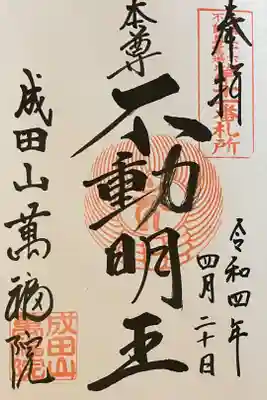 奉拝
令和四年
四月二十日
本尊
不動明王
成田山萬福院
成田山
萬福院